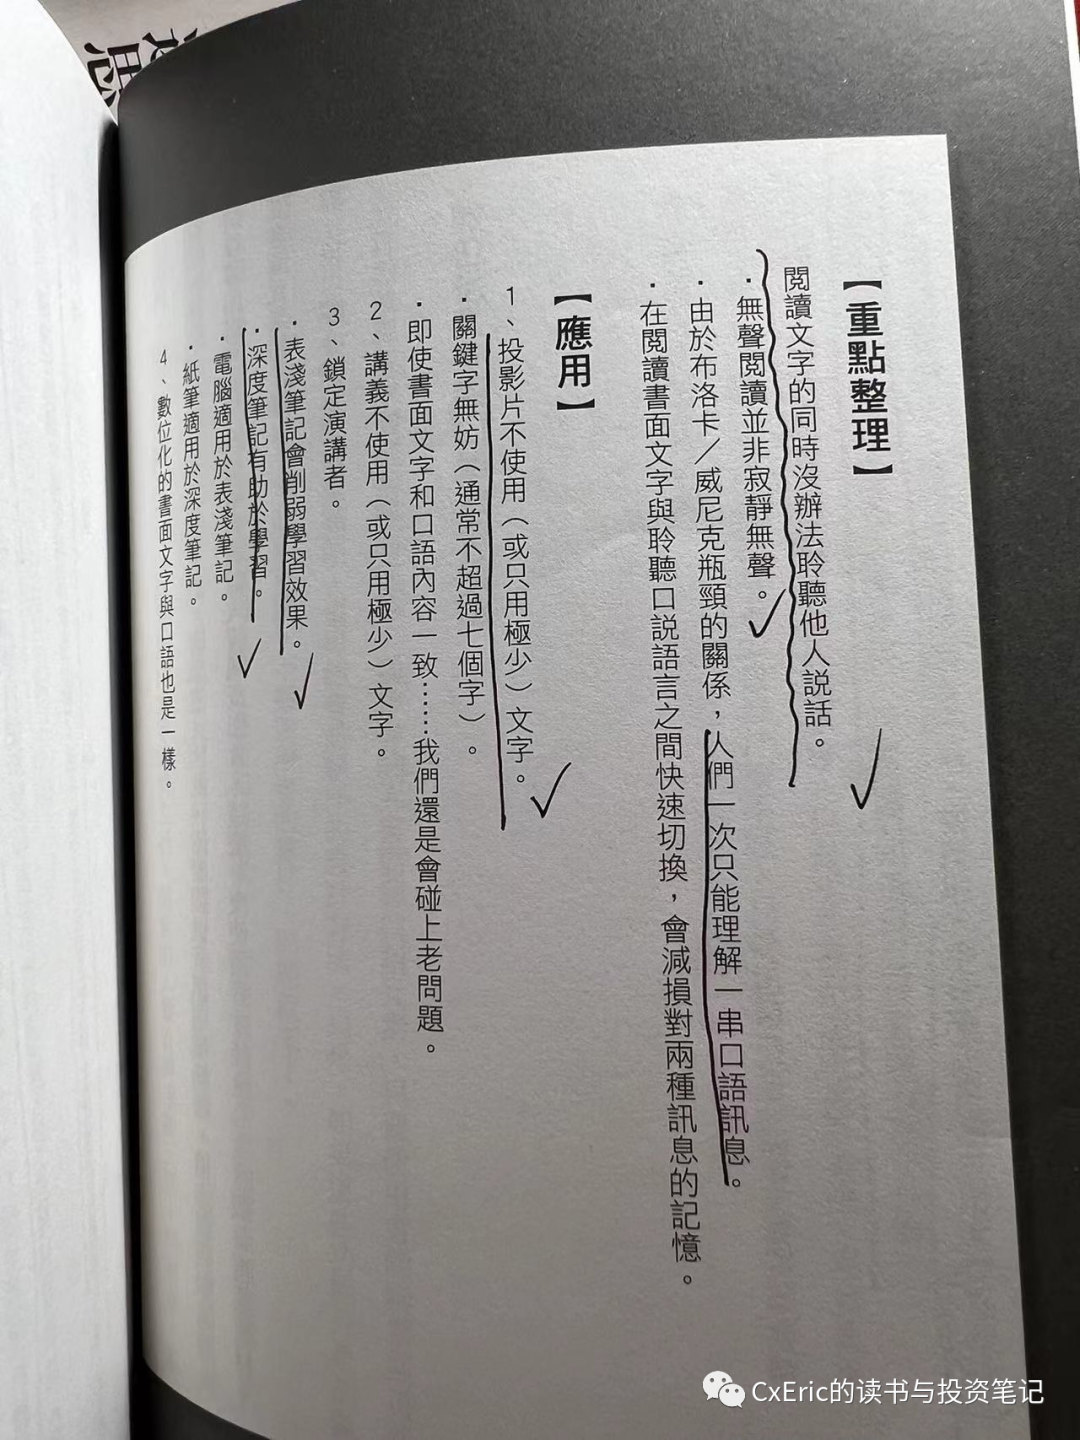 【重點整理】
閱讀文字的同時沒辦法聆聽他人說話。
・無聲閱讀並非寂靜無聲。
・由於布洛卡／威尼克瓶頸的關係，人們一次只能理解一串口語訊息。
・在閱讀書面文字與聆聽口說語言之間快速切換，會減損對兩種訊息的記憶。
【應用】
1、投影片不使用（或只用極少）文字。
・關鍵字無妨（通常不超過七個字）。
・即使書面文字和口語內容一致……我們還是會碰上老問題。
2、講義不使用（或只用極少）文字。
3、鎖定演講者。
・表淺筆記會削弱學習效果。
・深度筆記有助於學習。
・電腦適用於表淺筆記。
・紙筆適用於深度筆記。
4、數位化的書面文字與口語也是一樣。
CxEric的读书与投资笔记